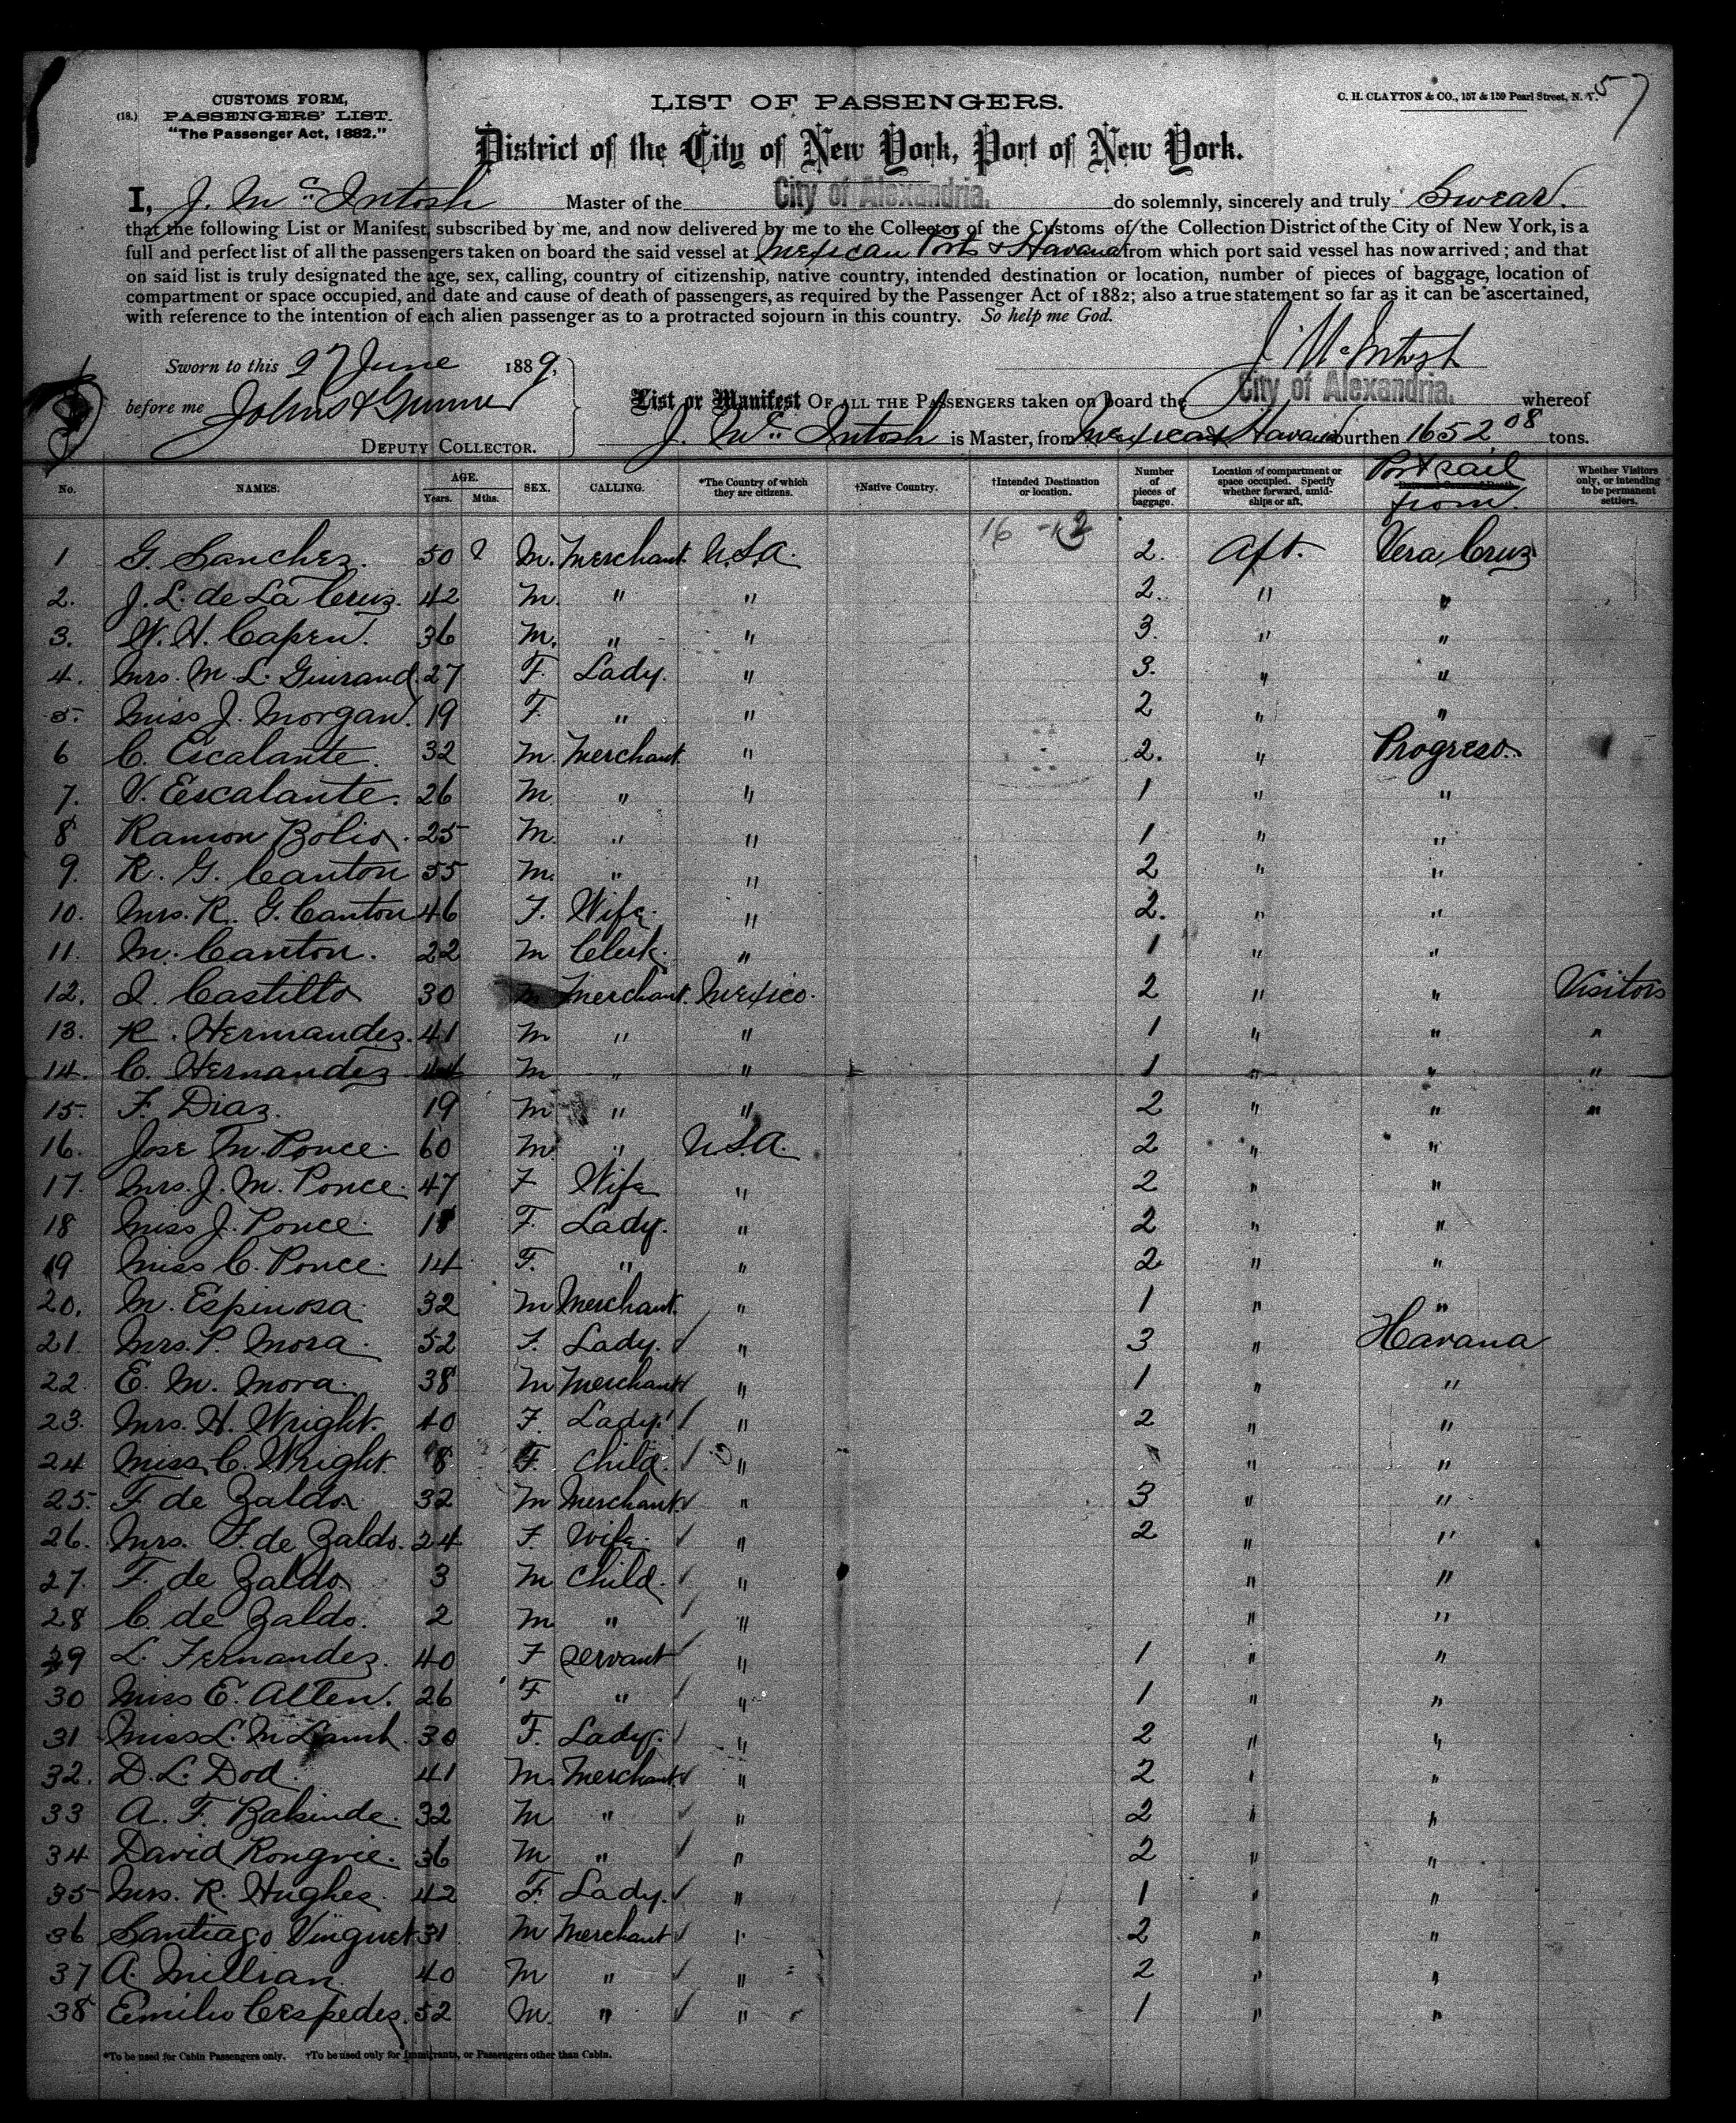 CUSTOMS FORM,
(18.) PASSENGERS' LIST.
"The Passenger Act, 1882."
LIST OF PASSENGERS.
C. H. CLAYTON & CO., 157 & 159 Pearl Street, N. Y.
57
District of the City of New York, Port of New York.
I, J. McIntosh Master of the City of Alexandria. do solemnly, sincerely and truly Swear.
that the following List or Manifest, subscribed by me, and now delivered by me to the Collector of the Customs of the Collection District of the City of New York, is a
full and perfect list of all the passengers taken on board the said vessel at Mexican Ports & Havana from which port said vessel has now arrived; and that
on said list is truly designated the age, sex, calling, country of citizenship, native country, intended destination or location, number of pieces of baggage, location of
compartment or space occupied, and date and cause of death of passengers, as required by the Passenger Act of 1882; also a true statement so far as it can be ascertained,
with reference to the intention of each alien passenger as to a protracted sojourn in this country. So help me God.
J. McIntosh
Sworn to this 27 June 1889,
before me
DEPUTY COLLECTOR.
List or Manifest OF ALL THE PASSENGERS taken on board the City of Alexandria. whereof
J. McIntosh is Master, from Mexico & Havana burthen 1652 08 tons.
No. NAMES. AGE. Years. Mths. SEX. CALLING. *The Country of which they are citizens. †Native Country. †Intended Destination or location. Number of pieces of baggage. Location of compartment or space occupied. Specify whether forward, amidships or aft. Port sail from Whether Visitors only, or intending to be permanent settlers.
1 G. Sanchez. 50 M. Merchant. U.S.A. 2. Aft. Vera Cruz
2. J. L. de La Cruz. 42 M. " " 2. " "
3. W. H. Capen. 36 M. " " 3. " "
4. Mrs. M. L. Guirand. 27 F. Lady. " 3. " "
5. Miss J. Morgan. 19 F. " " 2 " "
6 C. Escalante. 32 M. Merchant " 2. " Progreso.
7. V. Escalante. 26 M. " " 1 " "
8 Ramon Bolio. 25 M. " " 1 " "
9. R. G. Canton 55 M. " " 2 " "
10. Mrs. R. G. Canton 46 F. Wife. " 2. " "
11. M. Canton. 22 M Clerk. " 1 " "
12. I. Castillo 30 M Merchant. Mexico. 2 " " Visitors
13. R. Hernandez. 41 M " " 1 " " "
14. C. Hernandez 44 M " " 1 " " "
15. F. Diaz. 19 M " " 2 " " "
16. Jose M. Ponce. 60 M. " U.S.A. 2 " "
17. Mrs. J. M. Ponce. 47 F Wife " 2 " "
18 Miss J. Ponce. F. Lady. " 2 " "
19 Miss C. Ponce. 14 F. " " 2 " "
20. M. Espinosa. 32 M Merchant. " 1 " "
21. Mrs. P. Mora. 52 F. Lady. " 3 " Havana
22. E. M. Mora. 38 M Merchant " 1 " "
23. Mrs. H. Wright. 40 F. Lady. " 2 " "
24 Miss C. Wright. 8 F. Child. " " "
25. F. de Zaldo. 32 M Merchant. " 3 " "
26. Mrs. F. de Zaldo. 24 F. Wife. " 2 " "
27. F. de Zaldo 3 M Child. " " "
28 C. de Zaldo. 2 M " " " "
29 L. Fernandez. 40 F Servant " 1 " "
30 Miss E. Allen. 26 F " " 1 " "
31 Miss L. M Lamb. 30 F. Lady. " 2 " "
32. D. L. Dod. 41 M. Merchant. " 2 " "
33 A. F. 32 M " " 2 " "
34 David 36 M " " 2 " "
35 Mrs. R. Hughes. 42 F. Lady. " 1 " "
36 Santiago 31 M Merchant " 2 " "
37 A. Millian. 40 M " " 2 " "
38 Emilio Cespedes. 52 M. " " 1 " "
*To be used for Cabin Passengers only. †To be used only for Immigrants, or Passengers other than Cabin.